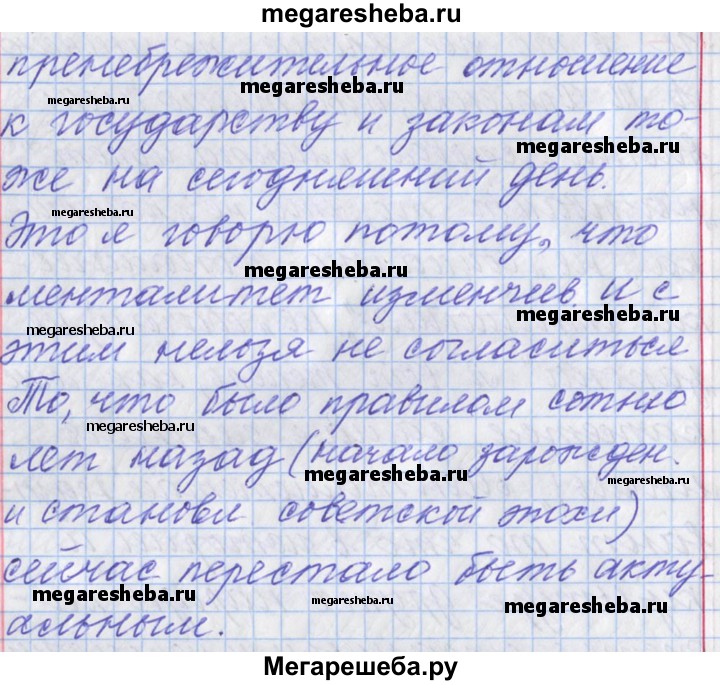 megaresheba.ru
пренебрежительное отношение
megaresheba.ru megaresheba.ru
к государству и законам то-
megaresheba.ru
же на сегодняшний день.
megaresheba.ru
Это я говорю потому, что
megaresheba.ru
менталитет изменчив. И с
megaresheba.ru megaresheba.ru
этим нельзя не согласиться
То, что было правилом сотню
megaresheba.ru
лет назад (начало зарожден.
megaresheba.ru megaresheba.ru
и становл советской эпохи)
сейчас перестало быть акту-
megaresheba.ru megaresheba.ru megaresheba.ru
альным.
Мегарешеба.ру